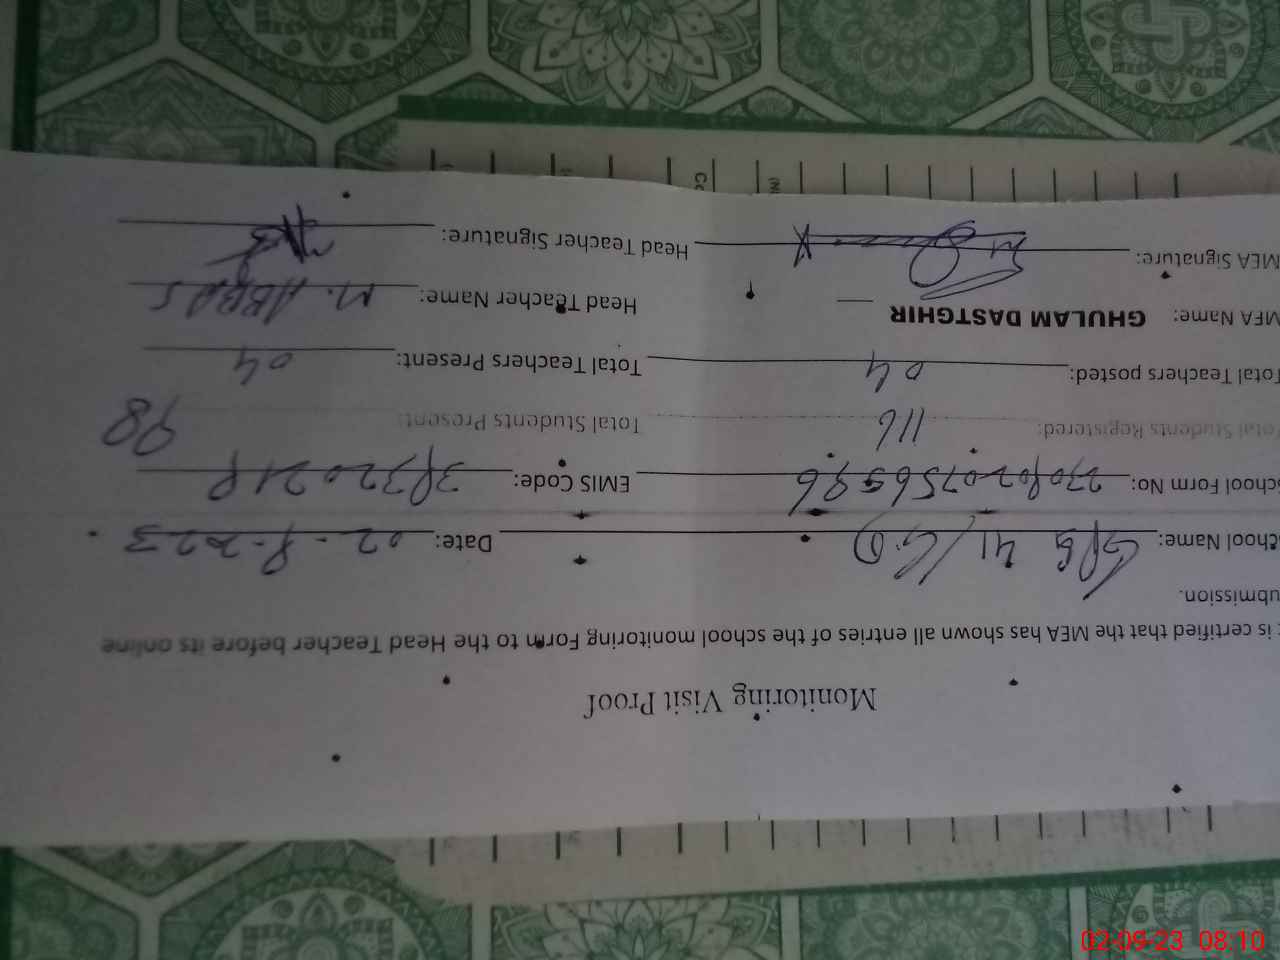 Monitoring Visit Proof
is certified that the MEA has shown all entries of the school monitoring Form to the Head Teacher before its online
ubmission.
chool Name: GPS 41/GD Date: 02-9-2023
chool Form No: EMIS Code:
Total Students Registered: 116 Total Students Present: 98
Total Teachers posted: 04 Total Teachers Present: 04
MEA Name: GHULAM DASTGHIR Head Teacher Name: M. ABBAS
MEA Signature: Head Teacher Signature:
02-09-23 08:10